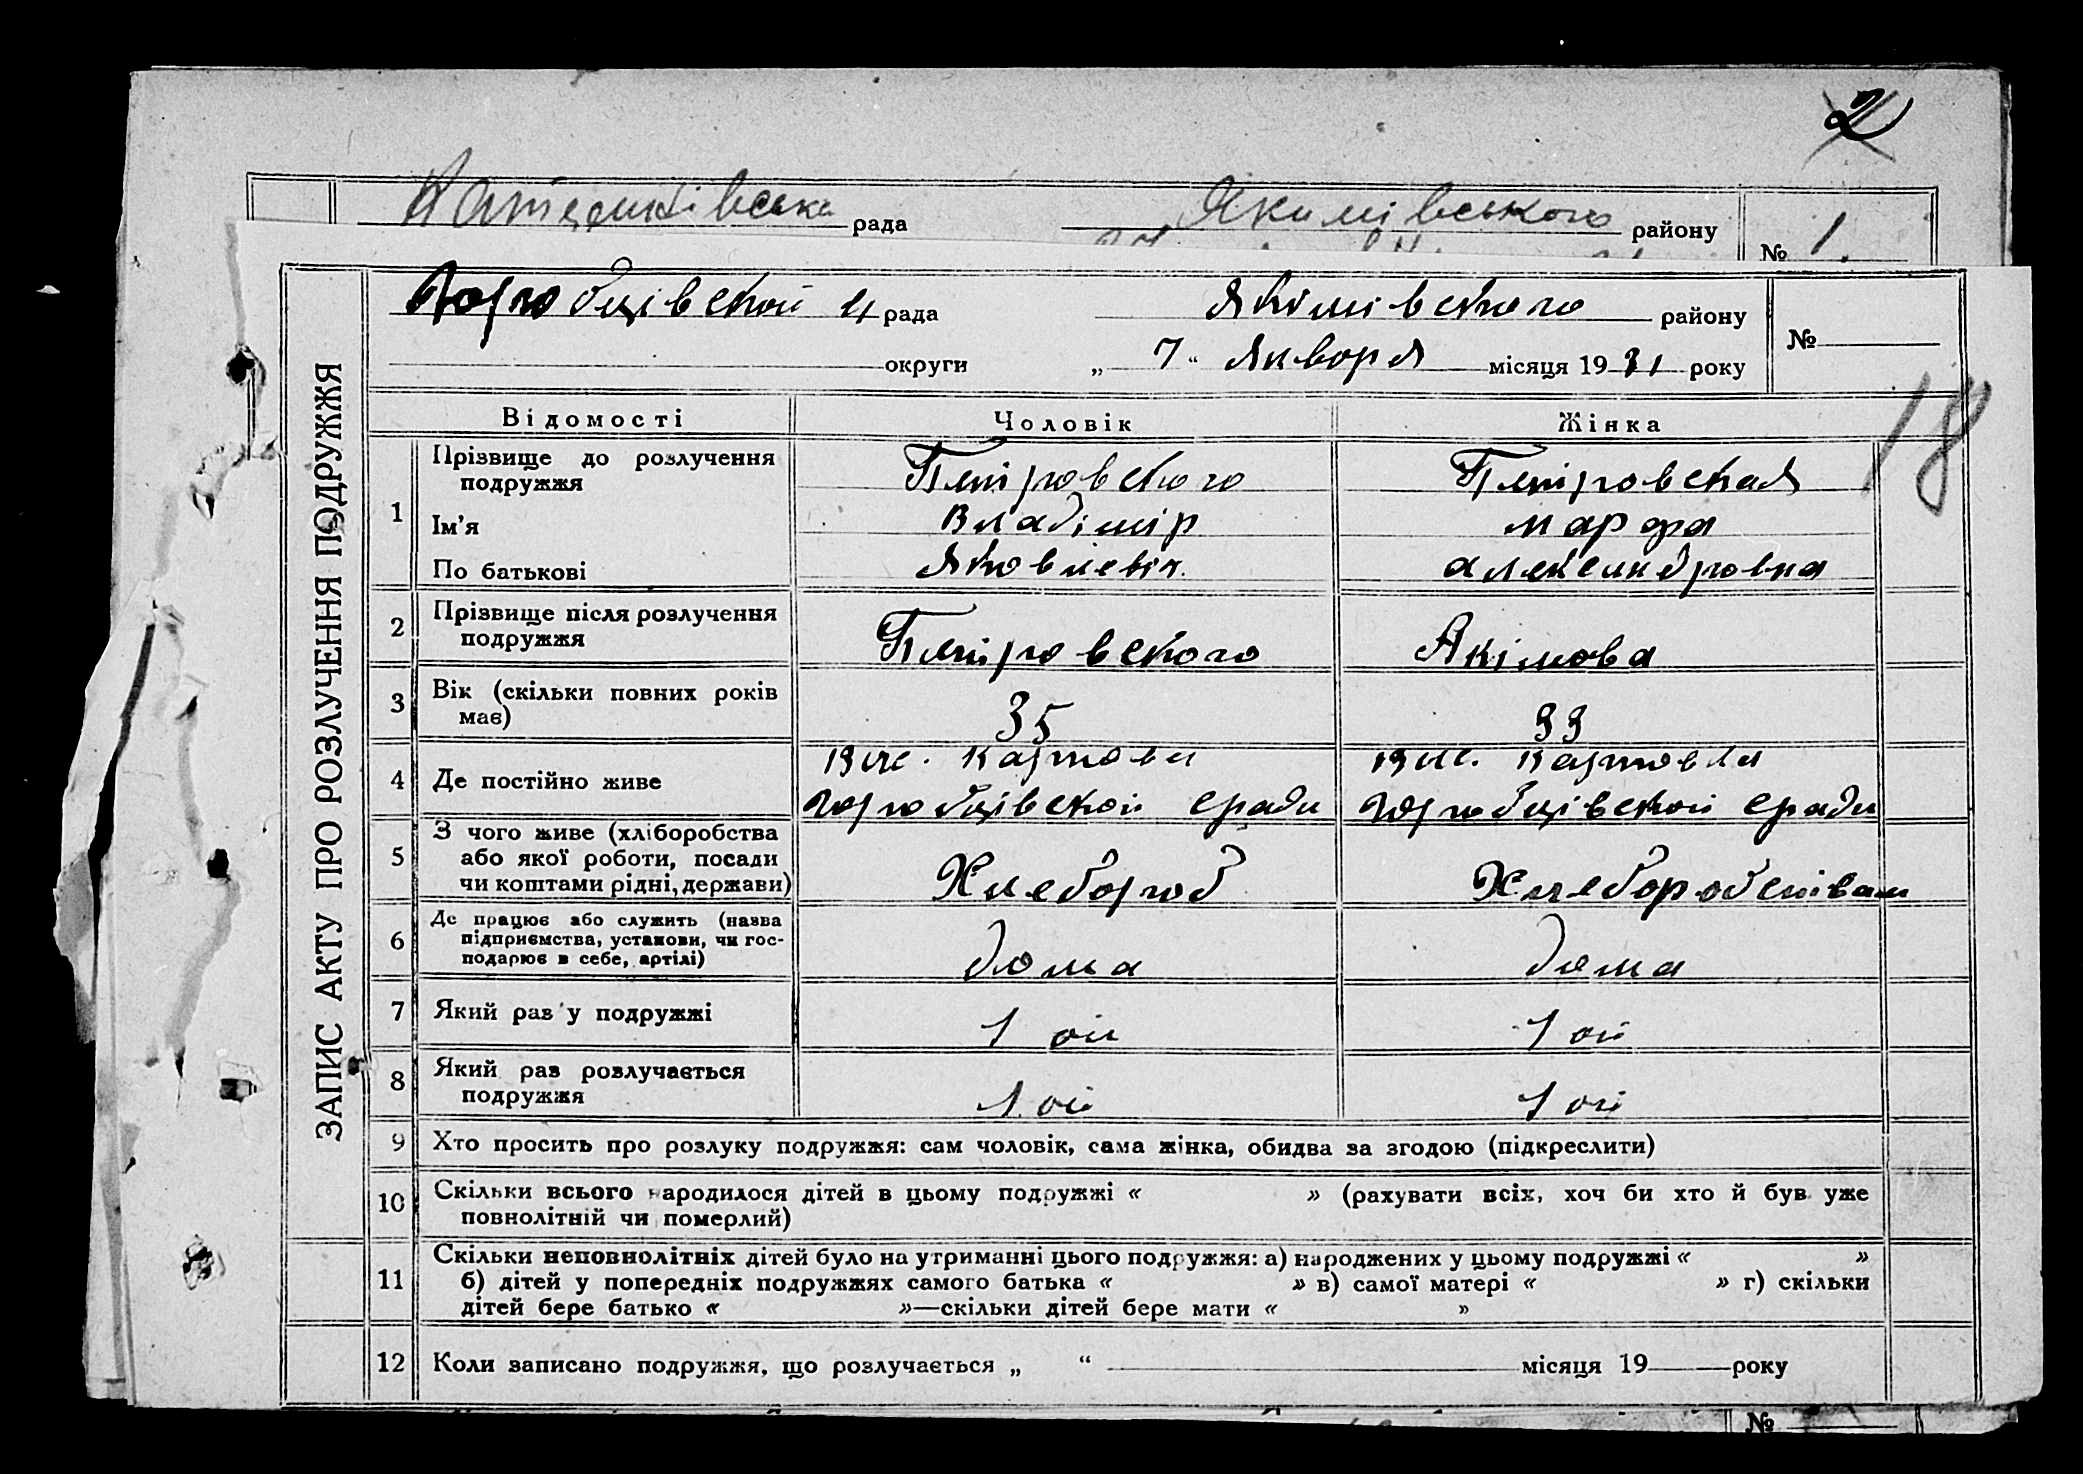 2
рада Якимівського району № 1
ЗАПИС АКТУ ПРО РОЗЛУЧЕННЯ ПОДРУЖЖЯ
рада Якімівского району №
округи „ 7 “ Января місяця 1931 року
18
Відомості Чоловік Жінка
1 Прізвище до розлучення подружжя Пятіровского Пятіровская
Ім'я Владімір Марфа
По батькові Яковлевіч Александровна
2 Прізвище після розлучення подружжя Пятіровского Акімова
3 Вік (скільки повних років має) 35 33
4 Де постійно живе
Горобцівской сради Горобцівской сради
5 З чого живе (хліборобства або якої роботи, посади чи коштами рідні, держави) Хлебороб Хлеборобством
6 Де працює або служить (назва підприємства, установи, чи господарює в себе, артілі) дома дома
7 Який раз у подружжі 1 ой 1 ой
8 Який раз розлучається подружжя 1 ой 1 ой
9 Хто просить про розлуку подружжя: сам чоловік, сама жінка, обидва за згодою (підкреслити)
10 Скільки всього народилося дітей в цьому подружжі « » (рахувати всіх, хоч би хто й був уже
повнолітній чи померлий)
11 Скільки неповнолітніх дітей було на утриманні цього подружжя: а) народжених у цьому подружжі « »
б) дітей у попередніх подружжях самого батька « » в) самої матері « » г) скільки
дітей бере батько « »—скільки дітей бере мати « »
12 Коли записано подружжя, що розлучається „ “ місяця 19 року
№